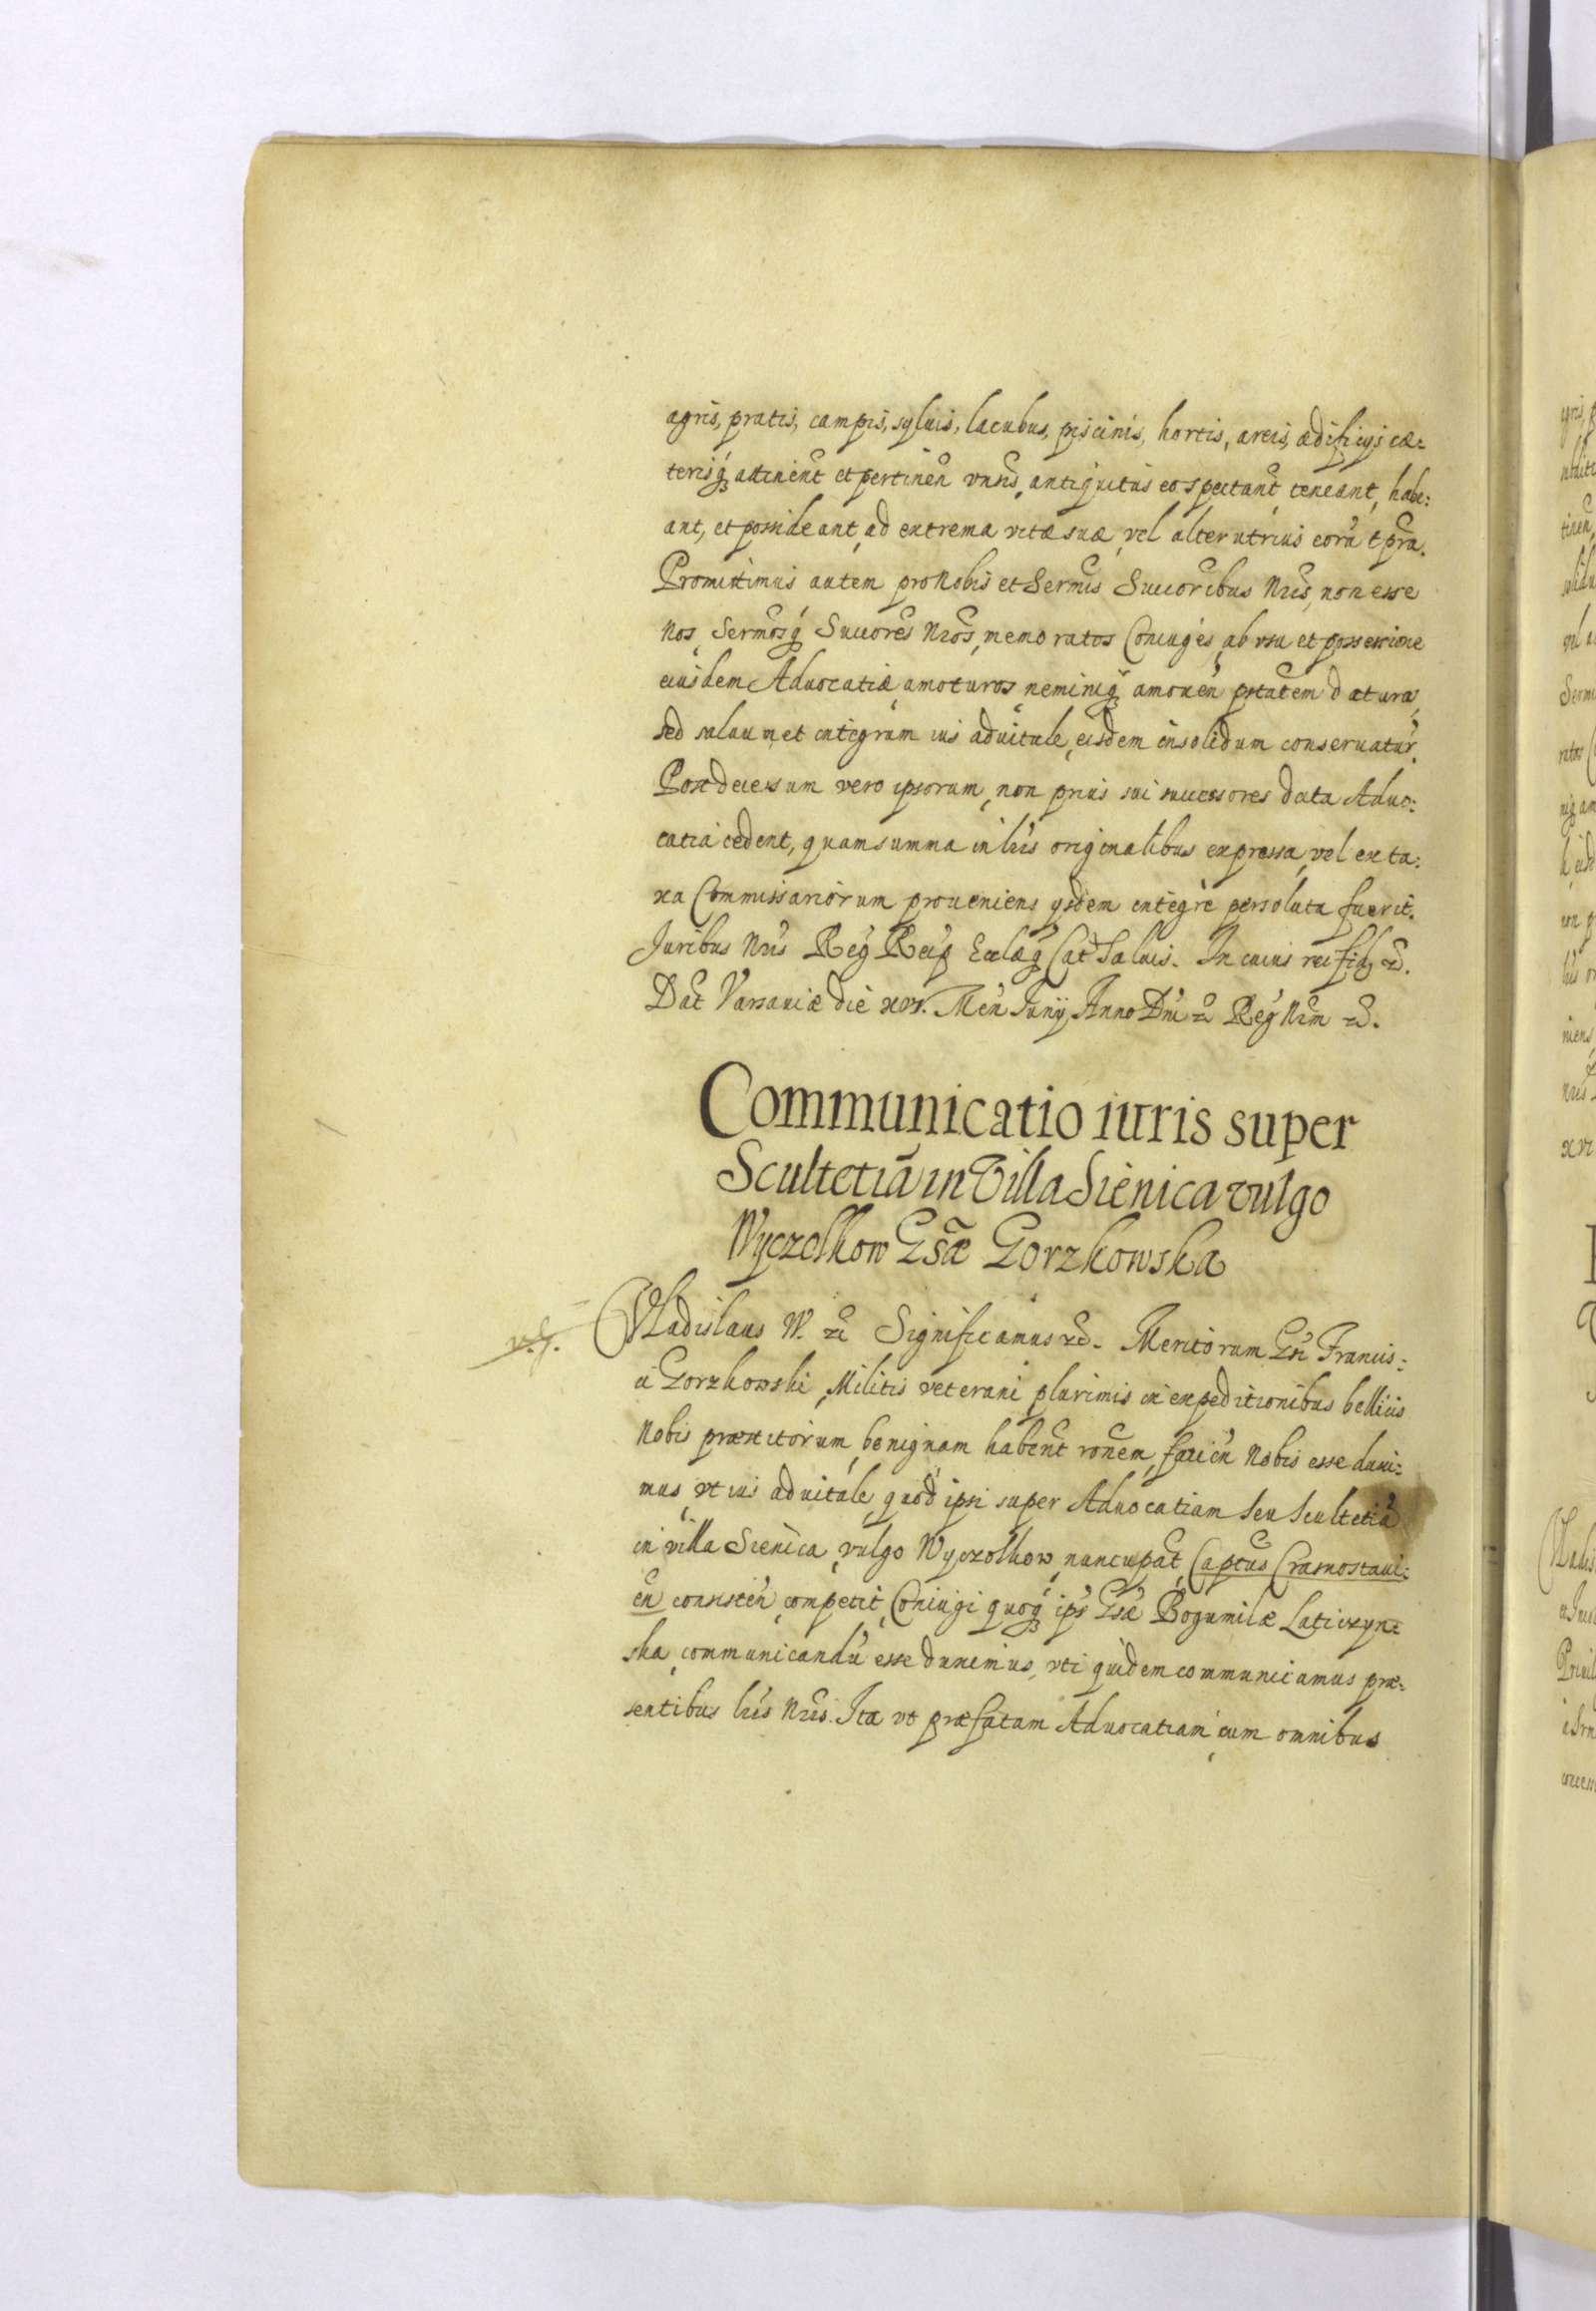 agris, pratis, campis, syluis, lacubus, piscinis, hortis, areis, ædificijs cæ:
terisq; attinent et pertinen vnsis, antiquitus eo spectant, teneant, habe:
ant, et possideant, ad extrema vitæ suæ, vel alterutrius eorũ tpra.
Promittimus autem pro Nobis et Sermis Succoribus Nris, non esse
Nos, Sermosq; Succores Nros, memoratos Coniuges, ab vsu et possessione
eiusdem Aduocatiæ amoturos, neminiq; amouen ptatem daturos,
sed saluum et integrum ius aduitale, eisdem in solidum conseruatur.
Post decessum vero ipsorum, non prius sui successores dicta Aduo:
catia cedent, quam summa in lris originalibus expressa, vel ex ta:
xa Commissariorum proueniens ysdem integrè persoluta fuerit.
Juribus Nris Reg Reip Ecclæq; Cat Saluis. In cuius rei fid, &.
Dat Varsauiæ die xvi. Men Junij Anno Dni & Reg Nrm &.
Communicatio iuris super
Scultetiã in Villa Sienica vulgo
Wyczolkow Gsæ Gorzkowska
Vladislaus IV. & Significamus &. Meritorum Gsi Francis:
ci Gorzkowski, Militis veterani plurimis in expeditionibus bellicis
Nobis præstitorum, benignam habent ronem, facien Nobis esse duxi:
mus, vt ius aduitale, quod ipsi super Aduocatiam seu Scultetiã
in villa Sienica, vulgo Wyczolkow, nuncupat, Captus Crasnostaui:
en consisten, competit, Coniugi quoq; ips Gsæ Bogumilæ Laticzyn:
ska, communicandũ esse duximus, vti quidem communicamus præ:
sentibus lris Nris. Ita vt præfatam Aduocatiam cum omnibus